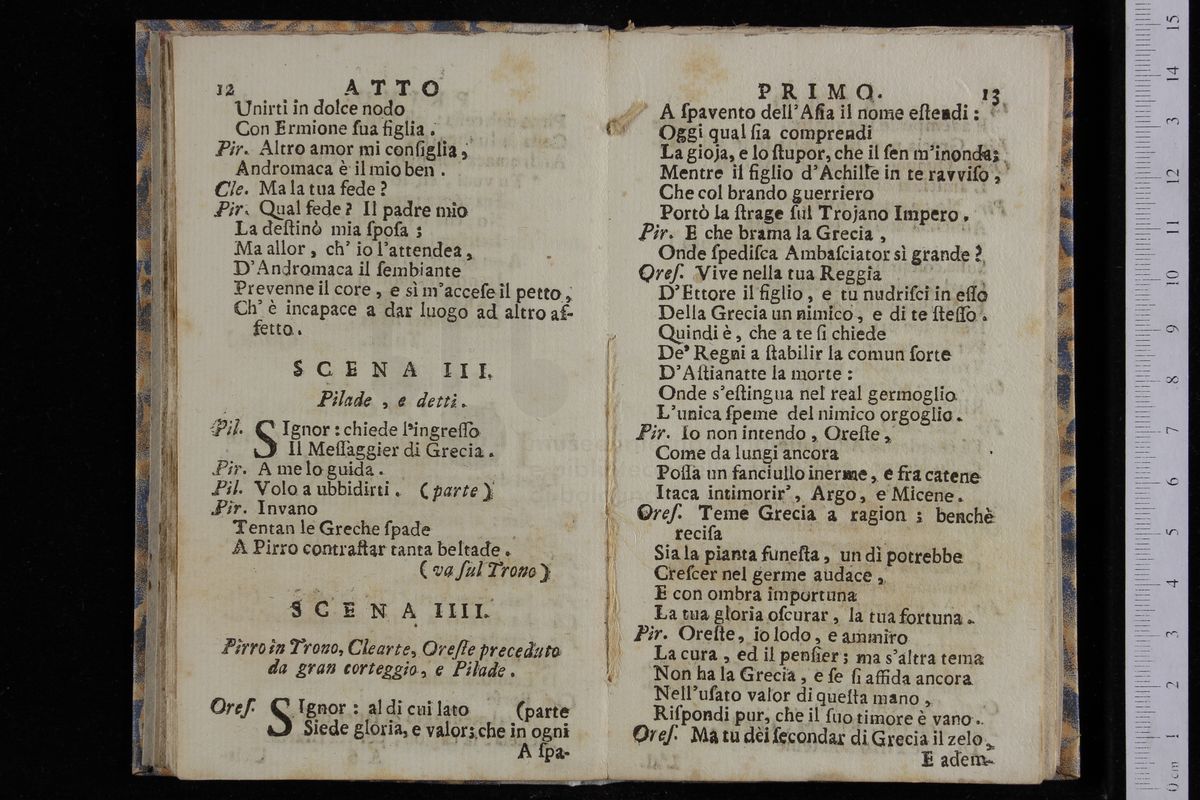 12 ATTO
Unirti in dolce nodo
Con Ermione sua figlia.
Pir. Altro amor mi consiglia,
Andromaca è il mio ben.
Cle. Ma la tua fede?
Pir. Qual fede? Il padre mio
La deſtinò mia ſpoſa;
Ma allor, ch' io l'attendea,
D'Andromaca il ſembiante
Prevenne il core, e sì m'acceſe il petto,
Ch' è incapace a dar luogo ad altro af-
fetto.
SCENA III.
Pilade, e detti.
Pil. SIgnor: chiede l'ingreſſo
Il Meſſaggier di Grecia.
Pir. A me lo guida.
Pil. Volo a ubbidirti. (parte)
Pir. Invano
Tentan le Greche ſpade
A Pirro contraſtar tanta beltade.
(va ſul Trono)
SCENA IIII.
Pirro in Trono, Clearte, Oreſte preceduto
da gran corteggio, e Pilade.
Oreſ. SIgnor: al di cui lato (parte
Siede gloria, e valor; che in ogni
A ſpa-
PRIMO. 13
A ſpavento dell'Aſia il nome eſtendi:
Oggi qual ſia comprendi
La gioja, e lo ſtupor, che il ſen m'inonda;
Mentre il figlio d'Achille in te ravviſo,
Che col brando guerriero
Portò la ſtrage ſul Trojano Impero.
Pir. E che brama la Grecia,
Onde ſpediſca Ambaſciator sì grande?
Oreſ. Vive nella tua Reggia
D'Ettore il figlio, e tu nudriſci in eſſo
Della Grecia un nimico, e di te ſteſſo.
Quindi è, che a te ſi chiede
De' Regni a ſtabilir la comun ſorte
D'Aſtianatte la morte:
Onde s'eſtingua nel real germoglio
L'unica ſpeme del nimico orgoglio.
Pir. Io non intendo, Oreſte,
Come da lungi ancora
Poſſa un fanciullo inerme, e fra catene
Itaca intimorir', Argo, e Micene.
Oreſ. Teme Grecia a ragion; benchè
reciſa
Sia la pianta funeſta, un dì potrebbe
Creſcer nel germe audace,
E con ombra importuna
La tua gloria oſcurar, la tua fortuna.
Pir. Oreſte, io lodo, e ammiro
La cura, ed il penſier; ma s'altra tema
Non ha la Grecia, e ſe ſi affida ancora
Nell'uſato valor di queſta mano,
Riſpondi pur, che il ſuo timore è vano.
Oreſ. Ma tu dèi ſecondar di Grecia il zelo,
E adem-
0 cm 1 2 3 4 5 6 7 8 9 10 11 12 3 14 15